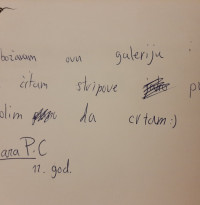 božavam ovu galeriju i
čitam stripove
da crtam:)
ara P.C
11. god.